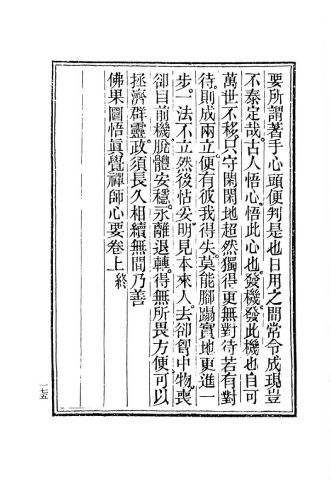 要所謂著手心頭便判是也日用之間常令成現豈
不泰定哉古人悟心悟此心也發機發此機也自可
萬世不移只守閑閑地超然獨得更無對待若有對
待則成兩立便有彼我得失莫能腳蹋實地更進一
步一法不立然後怗妥明見本來人去卻胷中物喪
卻目前機脫體安穩永離退轉得無所畏方便可以
拯濟群靈政須長久相續無間乃善
佛果圜悟眞覺禪師心要卷上終
一七五